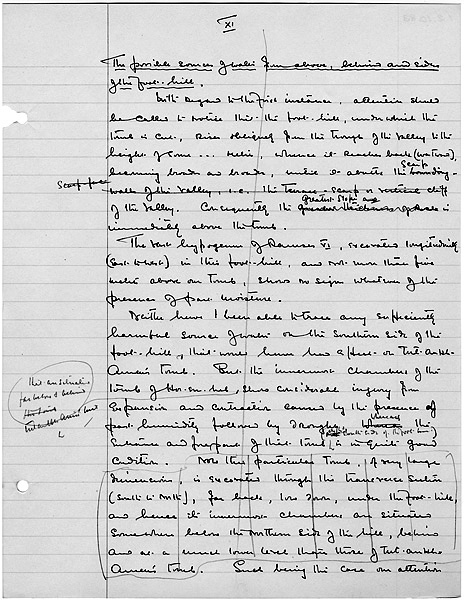 XI
The possible sources of water from above, behind and sides
of the foot-hill.
With regard to the first instance, attention should
be called to notice that the foot-hill, under which the
tomb is cut, rises obliquely from the trough of the valley to the
height of some ... metres whence it reaches back (westward),
becoming broader and broader, until it abuts the scarp bounding-
scarp face
walls of the valley, i.e. the terrace-scarp or vertical cliff
of the valley. Consequently the greatest slope and
immediately above the tomb.
The vast hypogeum of Ramses VI, excavated longitudinally
(east to west) in this foot-hill, and not more than five
metres above our tomb, shows no sign whatever of the
presence of past moisture.
Neither have I been able to trace any sufficiently
harmful source of water on the southern side of the
foot-hill, that would have had effect on Tut.ankh.
Amen's tomb. But the innermost chambers of the
tomb of Hor.em.heb, show considerable injury from
that are situated
far below & behind
Tut.ankh.Amen's tomb
expansion and contraction caused by the presence of
past humidity followed by drought, whereas the
(south side of the foot-hill)
entrance and forepart of that tomb is in quite good
condition. Now this particular tomb, of very large
dimensions, is excavated through the transverse section
(south to north), far back, low down, under the foot-hill,
and hence its innermost chambers are situated
somewhere below the northern side of the hill, behind
and at a much lower level than those of Tut.ankh.
Amen's tomb. Such being the case our attention